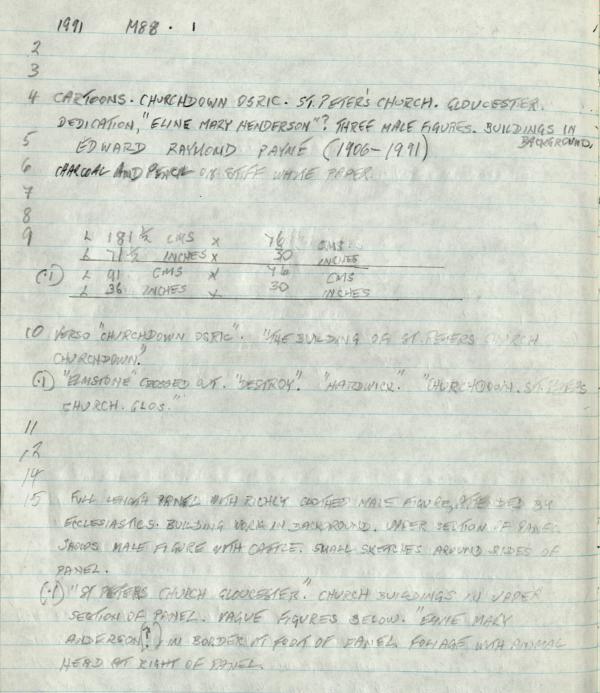 1991 M88 . 1
2
3
4 CARTOONS. CHURCHDOWN OSRIC. ST. PETER'S CHURCH. GLOUCESTER.
DEDICATION, "ELINE MARY HENDERSON"? THREE MALE FIGURES. BUILDINGS IN
BACKGROUND.
5 EDWARD RAYMOND PAYNE (1906-1991)
6 CHARCOAL AND PENCIL ON STIFF WHITE PAPER.
7
8
9 L 181 ½ CMS X 76 CMS
L 71 ½ INCHES X 30 INCHES
(.1) L 91 CMS X 76 CMS
L 36 INCHES X 30 INCHES
10 VERSO "CHURCHDOWN OSRIC". "THE BUILDING OF ST. PETERS CHURCH
CHURCHDOWN."
(.1) "ELMSTONE" CROSSED OUT. "DESTROY". "HARDWICK." "CHURCHDOWN. ST. PETERS
CHURCH. GLOS."
11
12
14
15 FULL LENGTH PANEL WITH RICHLY CLOTHED MALE FIGURE, ATTENDED BY
ECCLESIASTICS. BUILDING WORK IN BACKGROUND. UPPER SECTION OF PANEL
SHOWS MALE FIGURE WITH CATTLE. SMALL SKETCHES AROUND SIDES OF
PANEL.
(.1) "ST PETERS CHURCH GLOUCESTER." CHURCH BUILDINGS IN UPPER
SECTION OF PANEL. VAGUE FIGURES BELOW. "ELINE MARY
ANDERSON (?) IN BORDER AT FOOT OF PANEL. FOLIAGE WITH ANIMAL
HEAD AT RIGHT OF PANEL.